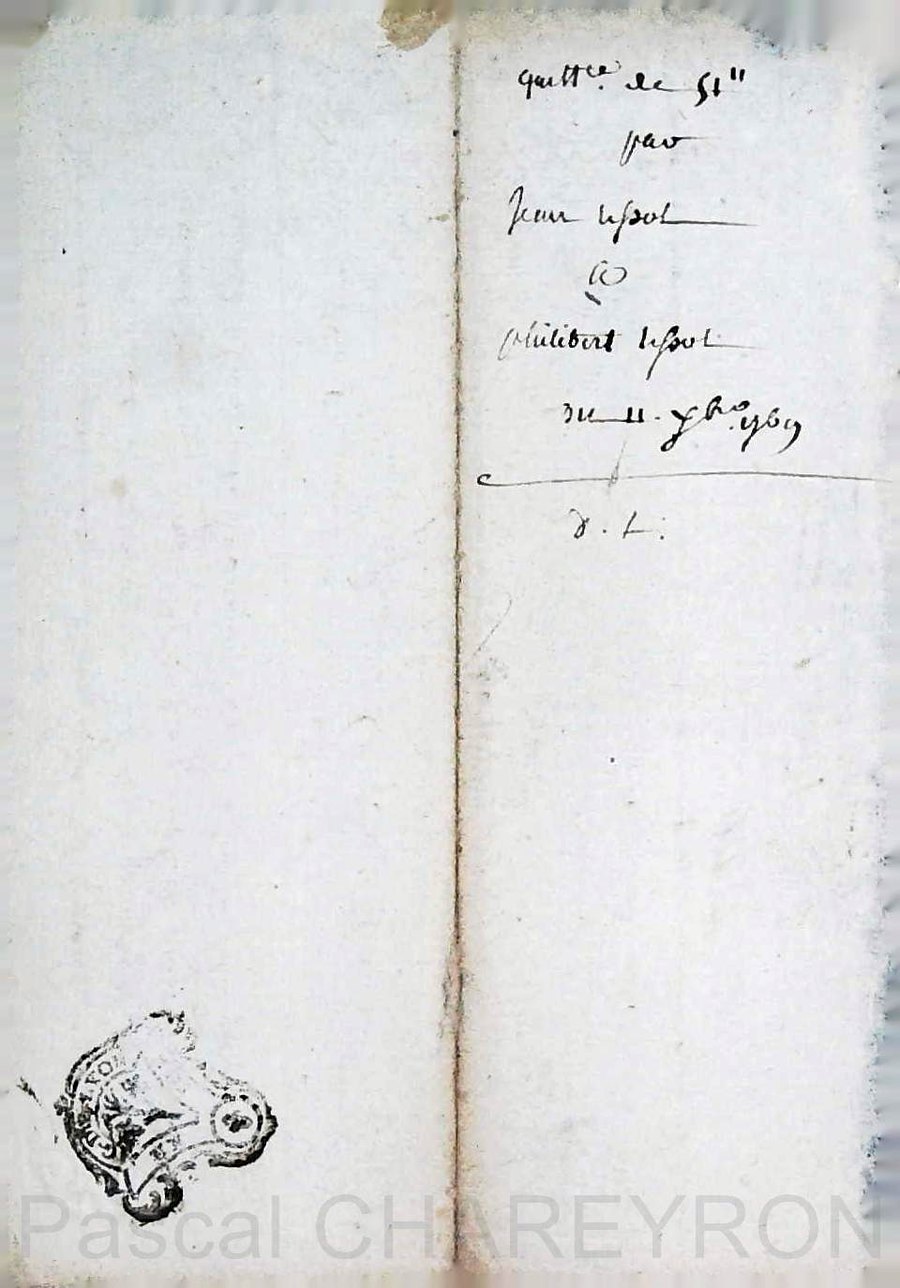 quitt.ce de 51"
par
Jean
a
philibert
du 11. xbre. 1769
d. L.
Pascal CHAREYRON